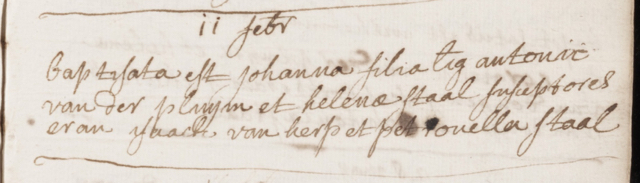 ii febr
baptisata est johanna filia Lig antonii
van der pluijm et helenæ staal susceptores
eran ijsaack van herp et petronella staal